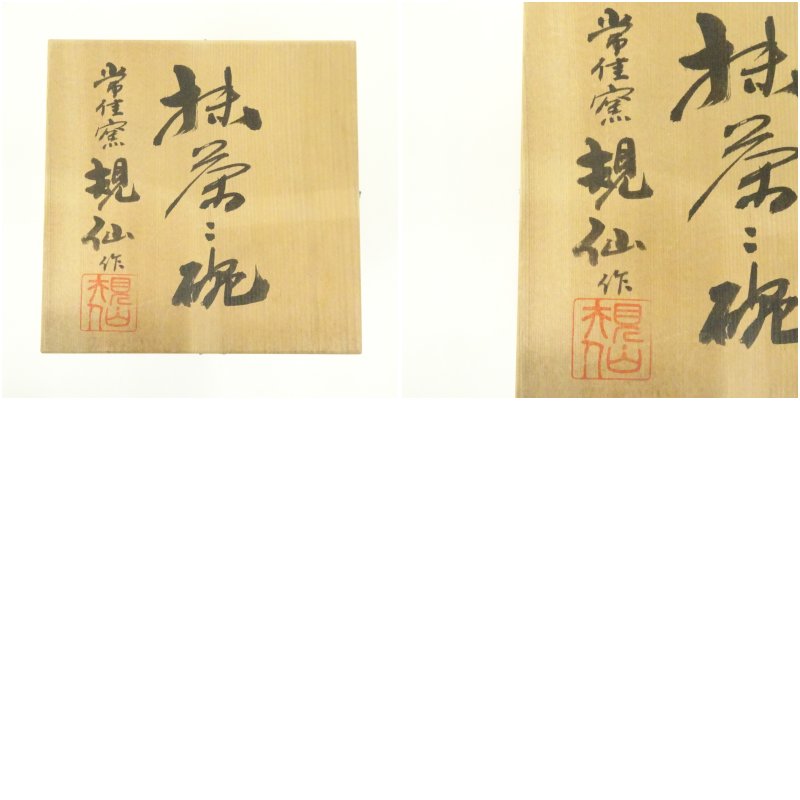 抹茶〻碗
常佳窯 規仙作
規仙
抹茶〻碗
常佳窯 規仙作
規仙